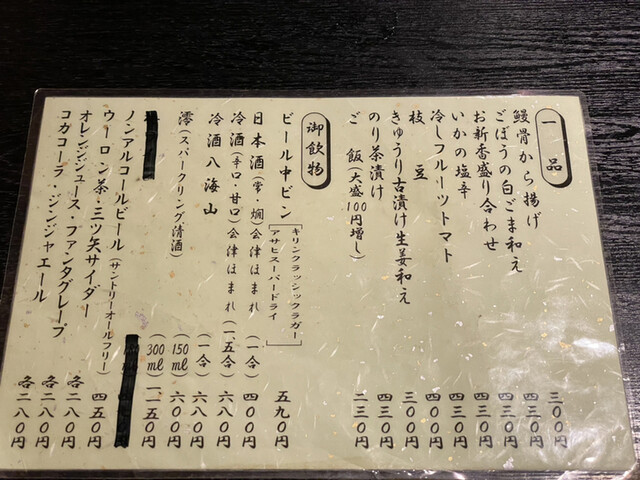 一品
鰻骨から揚げ 三〇〇円
ごぼうの白ごま和え 四三〇円
お新香盛り合わせ 四三〇円
いかの塩辛 五〇〇円
冷しフルーツトマト 四三〇円
枝豆 四〇〇円
きゅうり古漬け生姜和え 四三〇円
のり茶漬け 四三〇円
ご飯(大盛100円増し) 二三〇円
御飲物
ビール中ビン [キリンクラッシックラガー アサヒスーパードライ] 五九〇円
日本酒(常・燗)会津ほまれ (一合) 四〇〇円
冷酒(辛口・甘口)会津ほまれ (一、五合) 六八〇円
冷酒八海山 (一合) 六八〇円
澪(スパークリング清酒) (150ml) 六〇〇円
(300ml) 一一五〇円
ノンアルコールビール(サントリーオールフリー) 四五〇円
ウーロン茶・三ツ矢サイダー 各二八〇円
オレンジジュース・ファンタグレープ 各二八〇円
コカコーラ・ジンジャエール 各二八〇円